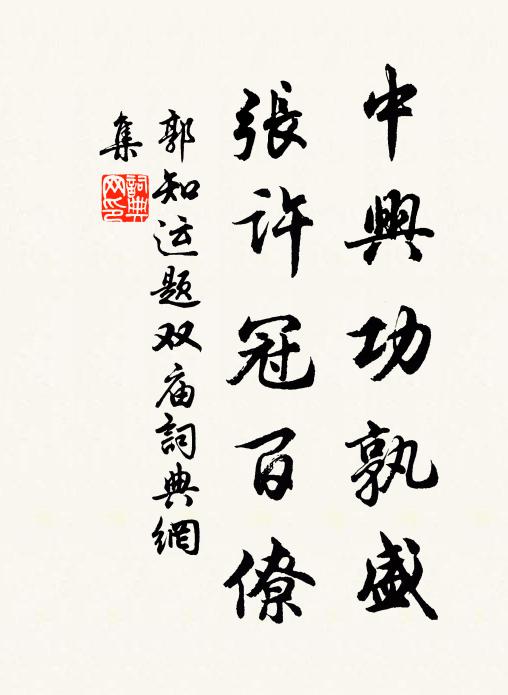 中興功孰盛
張許冠百僚
郭知运题双庙詞典網
集
詞典
网印